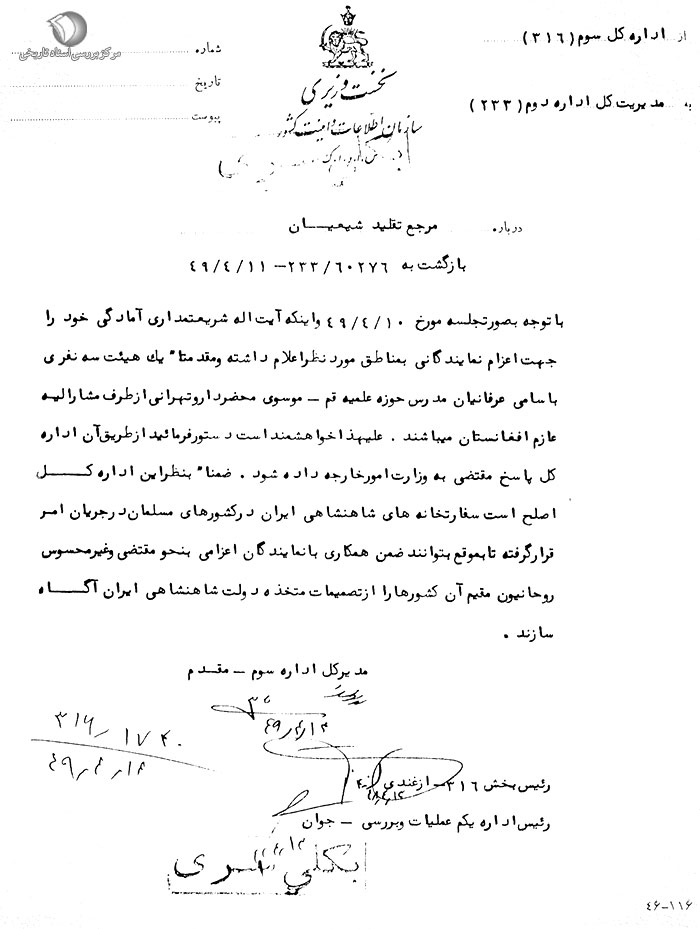 مرکز بررسی اسناد تاریخی
از اداره کل سوم (۳۱۶)
به مدیریت کل اداره دوم (۲۳۳)
شماره
تاریخ
پیوست
نخست وزیری
سازمان اطلاعات و امنیت کشور
س.ا.و.ا.ک
درباره مرجع تقلید شیعیان
بازگشت به ۲۳۳/۶۰۲۷۶ – ۴۹/۴/۱۱
با توجه بصورتجلسه مورخ ۴۹/۴/۱۰ واینکه آیت اله شریعتمداری آمادگی خود را
جهت اعزام نمایندگانی بمناطق مورد نظر اعلام داشته ومقدمتا" یك هیئت سه نفری
باسامی عرفانیان مدرس حوزه علمیه قم – موسوی محضردار وتهرانی ازطرف مشارالیه
عازم افغانستان میباشند . علیهذا خواهشمند است دستور فرمائید ازطریق آن اداره
کل پاسخ مقتضی به وزارت امورخارجه داده شود . ضمنا" بنظر این اداره کل
اصلح است سفارتخانه های شاهنشاهی ایران درکشورهای مسلمان درجریان امر
قرارگرفته تا بموقع بتوانند ضمن همکاری با نمایندگان اعزامی بنحو مقتضی وغیرمحسوس
روحانیون مقیم آن کشورها را ازتصمیمات متخذه دولت شاهنشاهی ایران آگاه
سازند .
مدیرکل اداره سوم – مقدم
۴۹/۴/۱۳
۳۱۶/۱۷۴۰
۴۹/۴/۱۴
رئیس بخش ۳۱۶ – ازغندی
رئیس اداره یکم عملیات وبررسی – جوان
بکلی سری
۴۶–۱۱۶